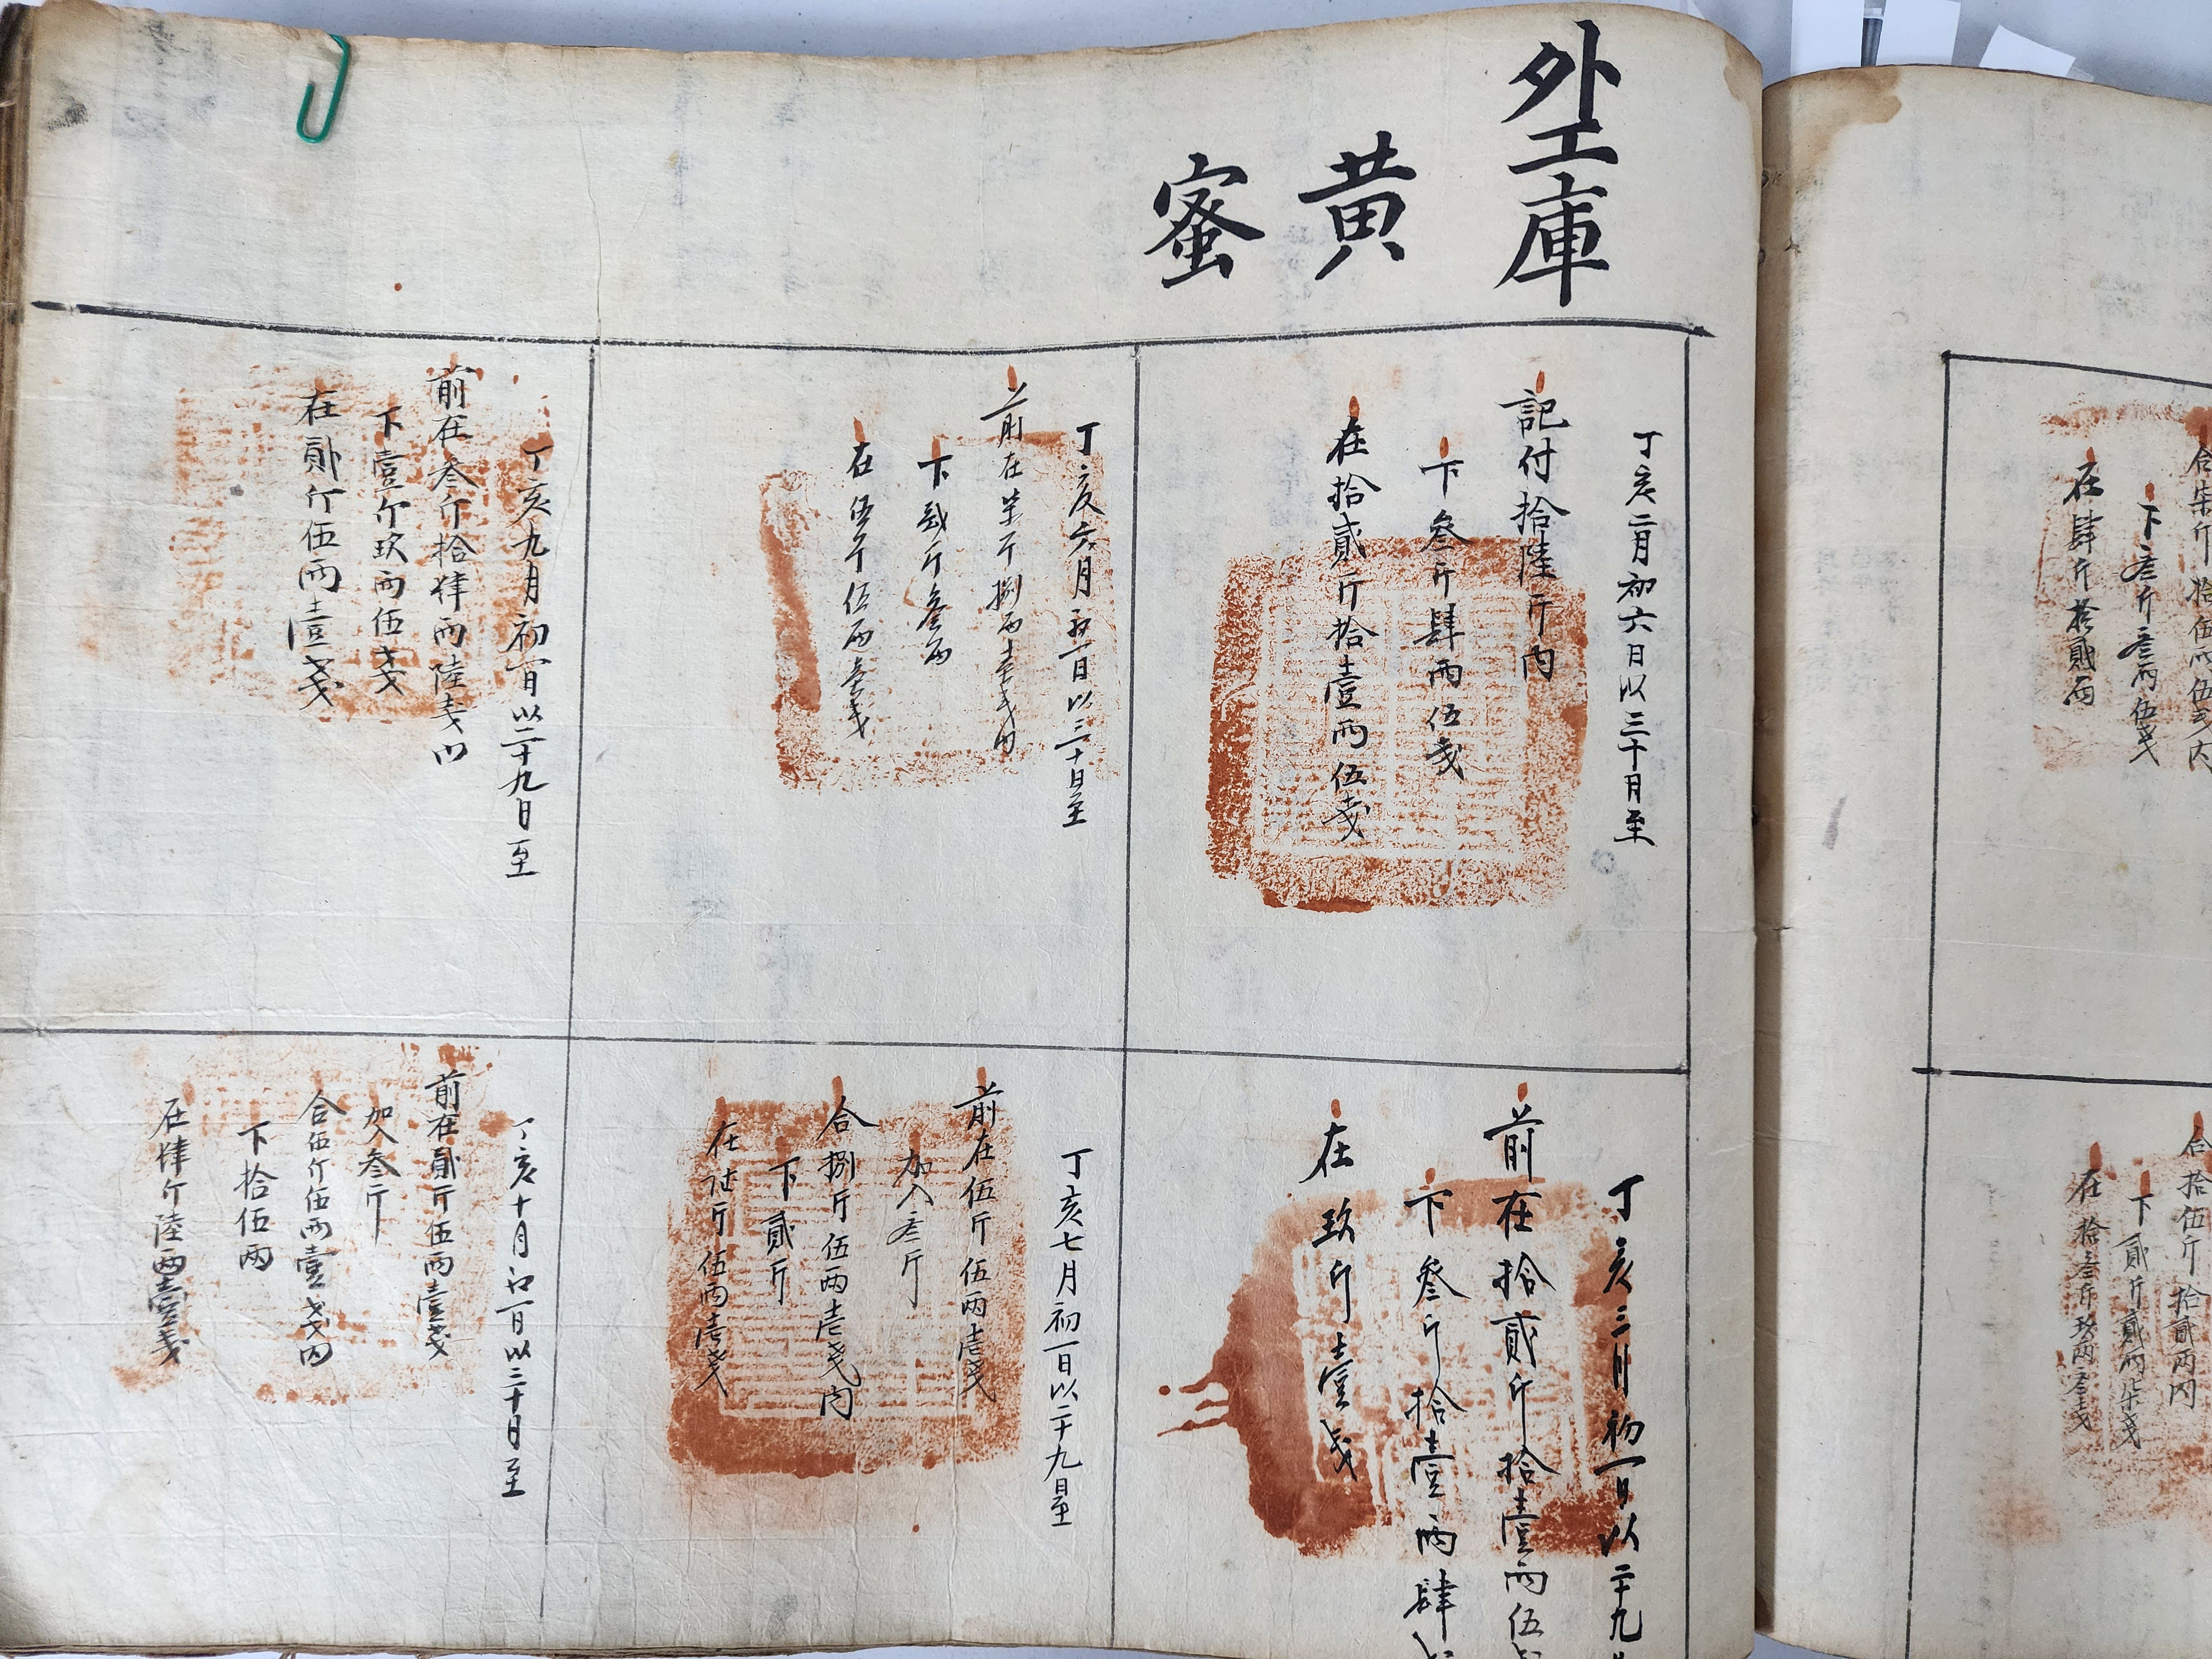 合柒斤拾伍兩伍戔内
下叁斤叁兩伍戔
在肆斤拾貳兩
合拾伍斤拾貳兩内
下貳斤貳兩柒戔
在拾叁斤玖兩叁戔
外工庫
黄蜜
丁亥二月初六日以三十日至
記付拾陸斤内
下叁斤肆兩伍戔
在拾貳斤拾壹兩伍戔
丁亥三月初一日以二十九
前在拾貳斤拾壹兩伍
下叁斤拾壹兩肆
在玖斤壹戔
丁亥六月初一日以三十日至
前在柒斤捌兩壹戔内
下貳斤叁兩
在伍斤伍兩壹戔
丁亥七月初一日以二十九日至
前在伍斤伍兩壹戔
加入叁斤
合捌斤伍兩壹戔内
下貳斤
在陸斤伍兩壹戔
丁亥九月初一日以二十九日至
前在叁斤拾肆兩陸戔内
下壹斤玖兩伍戔
在貳斤伍兩壹戔
丁亥十月初一日以三十日至
前在貳斤伍兩壹戔
加入叁斤
合伍斤伍兩壹戔内
下拾伍兩
在肆斤陸兩壹戔